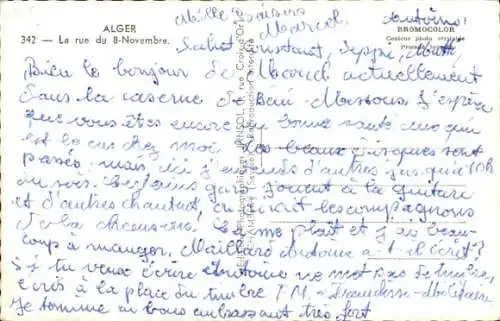 Mille Baisers
Marcel.
Antoine!
ALGER
342 — La rue du 8-Novembre.
BROMOCOLOR
Couleur photo véritable
Salut Constant, Seppi,
Bien le bonjour de Marcel actuellement
dans la caserne de Béni-Messous. J'espère
que vous êtes encore en bonne santé, moi qui
est le cas chez moi. Les beaux jours sont
passés mais ici j'en ai d'autres jusqu'à 10h
du soir. Certains gars jouent à la guitare
et d'autres chantent, on dirait les compagnons
de la chanson. Ça me plaît et j'ai beau-
coup à manger. Maillard Antoine a-t-il écrit?
Si tu veux écrire Antoine ne met pas de timbre,
écris à la place du timbre F M = Franchise-Militaire
Je termine en vous embrassant très fort